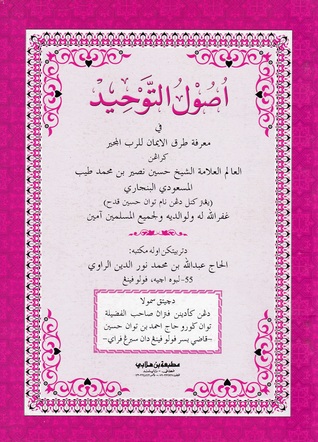 اُصُوْل التَّوْحِيْد
في
معرفة طرق الايمان للرب المجير
كراڠن
العالم العلامة الشيخ حسين نصير بن محمد طيب
المسعودي البنجاري
(يڠتركنل دڠن نام توان حسين قدح)
غفرالله له ولوالديه ولجميع المسلمين آمين
دتربيتكن اوله مكتبه:
الحاج عبدالله بن محمد نور الدين الراوي
55-ليبوه اچيه، ڤولو ڤينڠ
دچيتق سمولا
دڠن كأذينن ڤتران صاحب الفضيلة
توان ݢورو حاج احمد بن توان حسين
-قاضي بسر ڤولو ڤينڠ دان سبرڠ ڤراي-
مطبعة بن هلابي